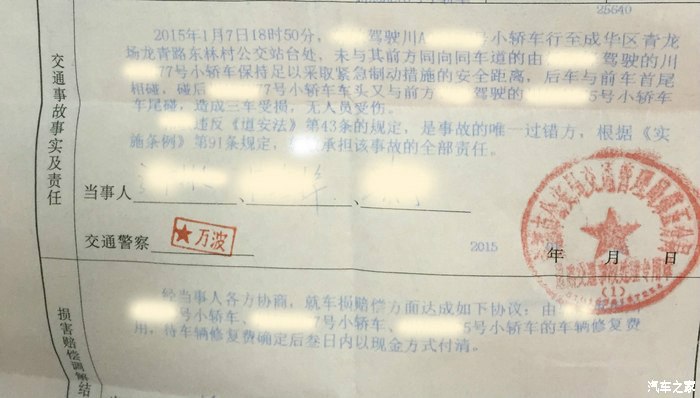 25640
2015年1月7日18时50分,
驾驶川A
号小轿车行至成华区青龙
场龙青路东林村公交站台处,未与其前方同向同车道的由
驾驶的川
77号小轿车保持足以采取紧急制动措施的安全距离,后车与前车首尾
相碰,碰后
77号小轿车车头又与前方
驾驶的
5号小轿车
车尾碰,造成三车受损,无人员受伤。
违反《道安法》第43条的规定,是事故的唯一过错方,根据《实
施条例》第91条规定,
承担该事故的全部责任。
交通事故事实及责任
当事人
交通警察
万波
2015
年 月 日
(1)
经当事人各方协商,就车损赔偿方面达成如下协议:由
号小轿车、
7号小轿车、
5号小轿车的车辆修复费
用,待车辆修复费确定后叁日内以现金方式付清。
损害赔偿调解结
汽车之家